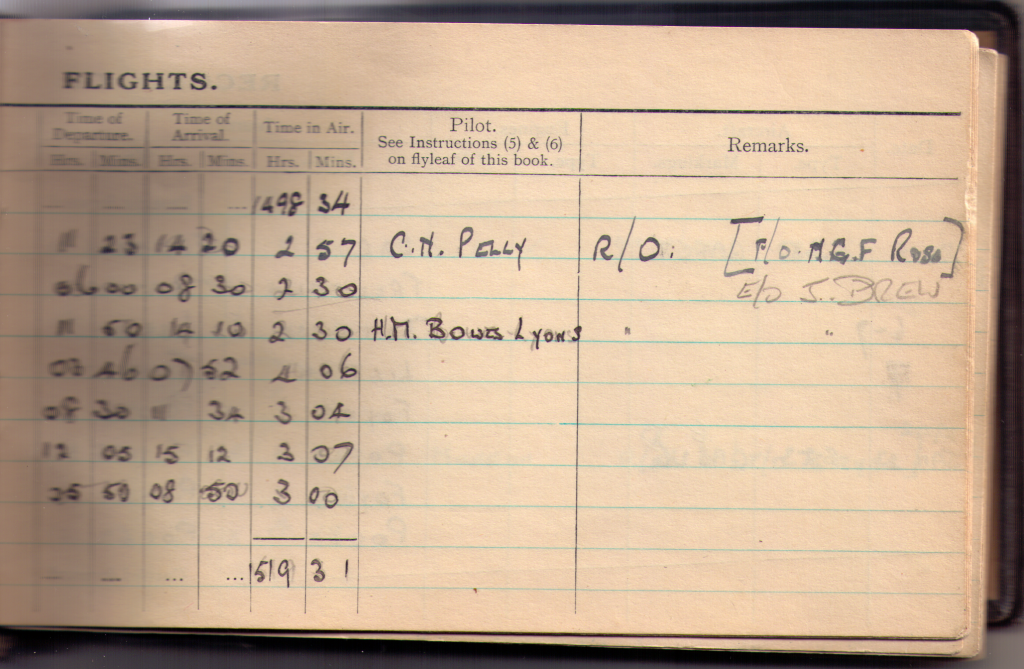 FLIGHTS.
Time of Departure. Time of Arrival. Time in Air. Pilot. See Instructions (5) & (6) on flyleaf of this book. Remarks.
Hrs. Mins. Hrs. Mins. Hrs. Mins.
... ... ... ... 1498 34
11 23 14 20 2 57 C.H. PELLY R/O: [F/O. M.G.F
06 00 08 30 2 30 E/O J. BREW
11 50 14 10 2 30 H.M. BOWES LYONS " "
03 46 07 52 4 06
08 30 11 34 3 04
12 05 15 12 3 07
05 50 08 50 3 00
... ... ... ... 1519 31